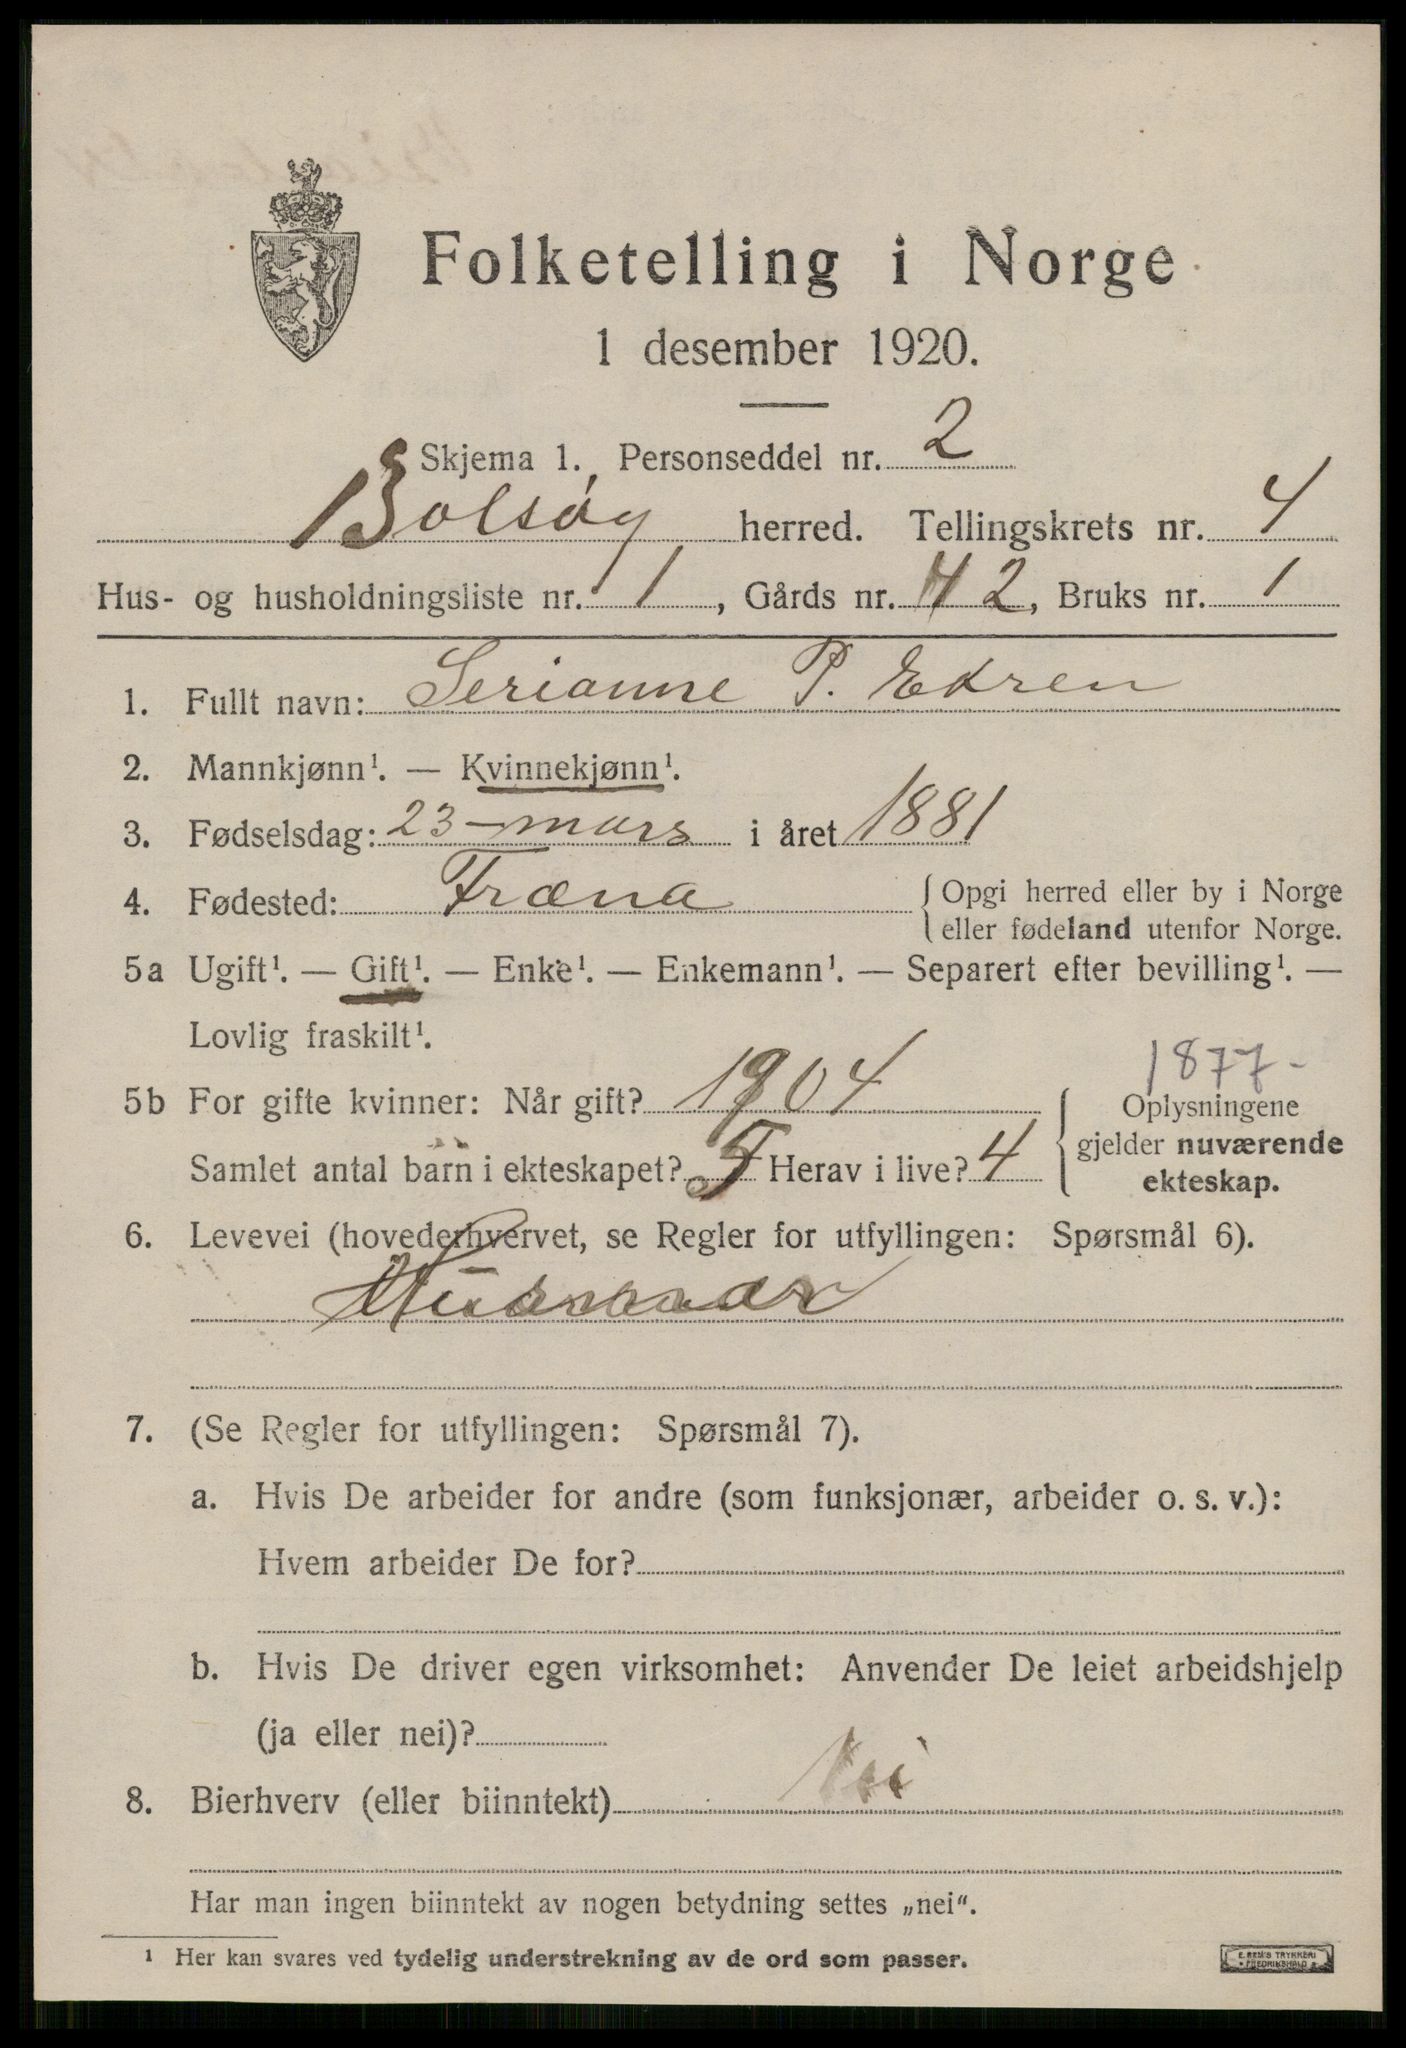 Folketelling i Norge
1 desember 1920.
Skjema 1. Personseddel nr. 2
Bolsøy herred. Tellingskrets nr. 4
Hus- og husholdningsliste nr. 1, Gårds nr. 42, Bruks nr. 1
1. Fullt navn: Serianne P. Ekren
2. Mannkjønn¹. — Kvinnekjønn¹.
3. Fødselsdag: 23-mars i året 1881
4. Fødested: Fræna { Opgi herred eller by i Norge
eller fødeland utenfor Norge.
5a Ugift¹. — Gift¹. — Enke¹. — Enkemann¹. — Separert efter bevilling¹. —
Lovlig fraskilt¹.
1877-
5b For gifte kvinner: Når gift? 1904 { Oplysningene
gjelder nuværende
Samlet antal barn i ekteskapet? 5 Herav i live? 4
ekteskap.
6. Levevei (hovederhvervet, se Regler for utfyllingen: Spørsmål 6).
7. (Se Regler for utfyllingen: Spørsmål 7).
a. Hvis De arbeider for andre (som funksjonær, arbeider o. s. v.):
Hvem arbeider De for?
b. Hvis De driver egen virksomhet: Anvender De leiet arbeidshjelp
(ja eller nei)?
8. Bierhverv (eller biinntekt) Nei
Har man ingen biinntekt av nogen betydning settes „nei“.
¹ Her kan svares ved tydelig understrekning av de ord som passer.
E. REM'S TRYKKERI
* FREDRIKSHALD *